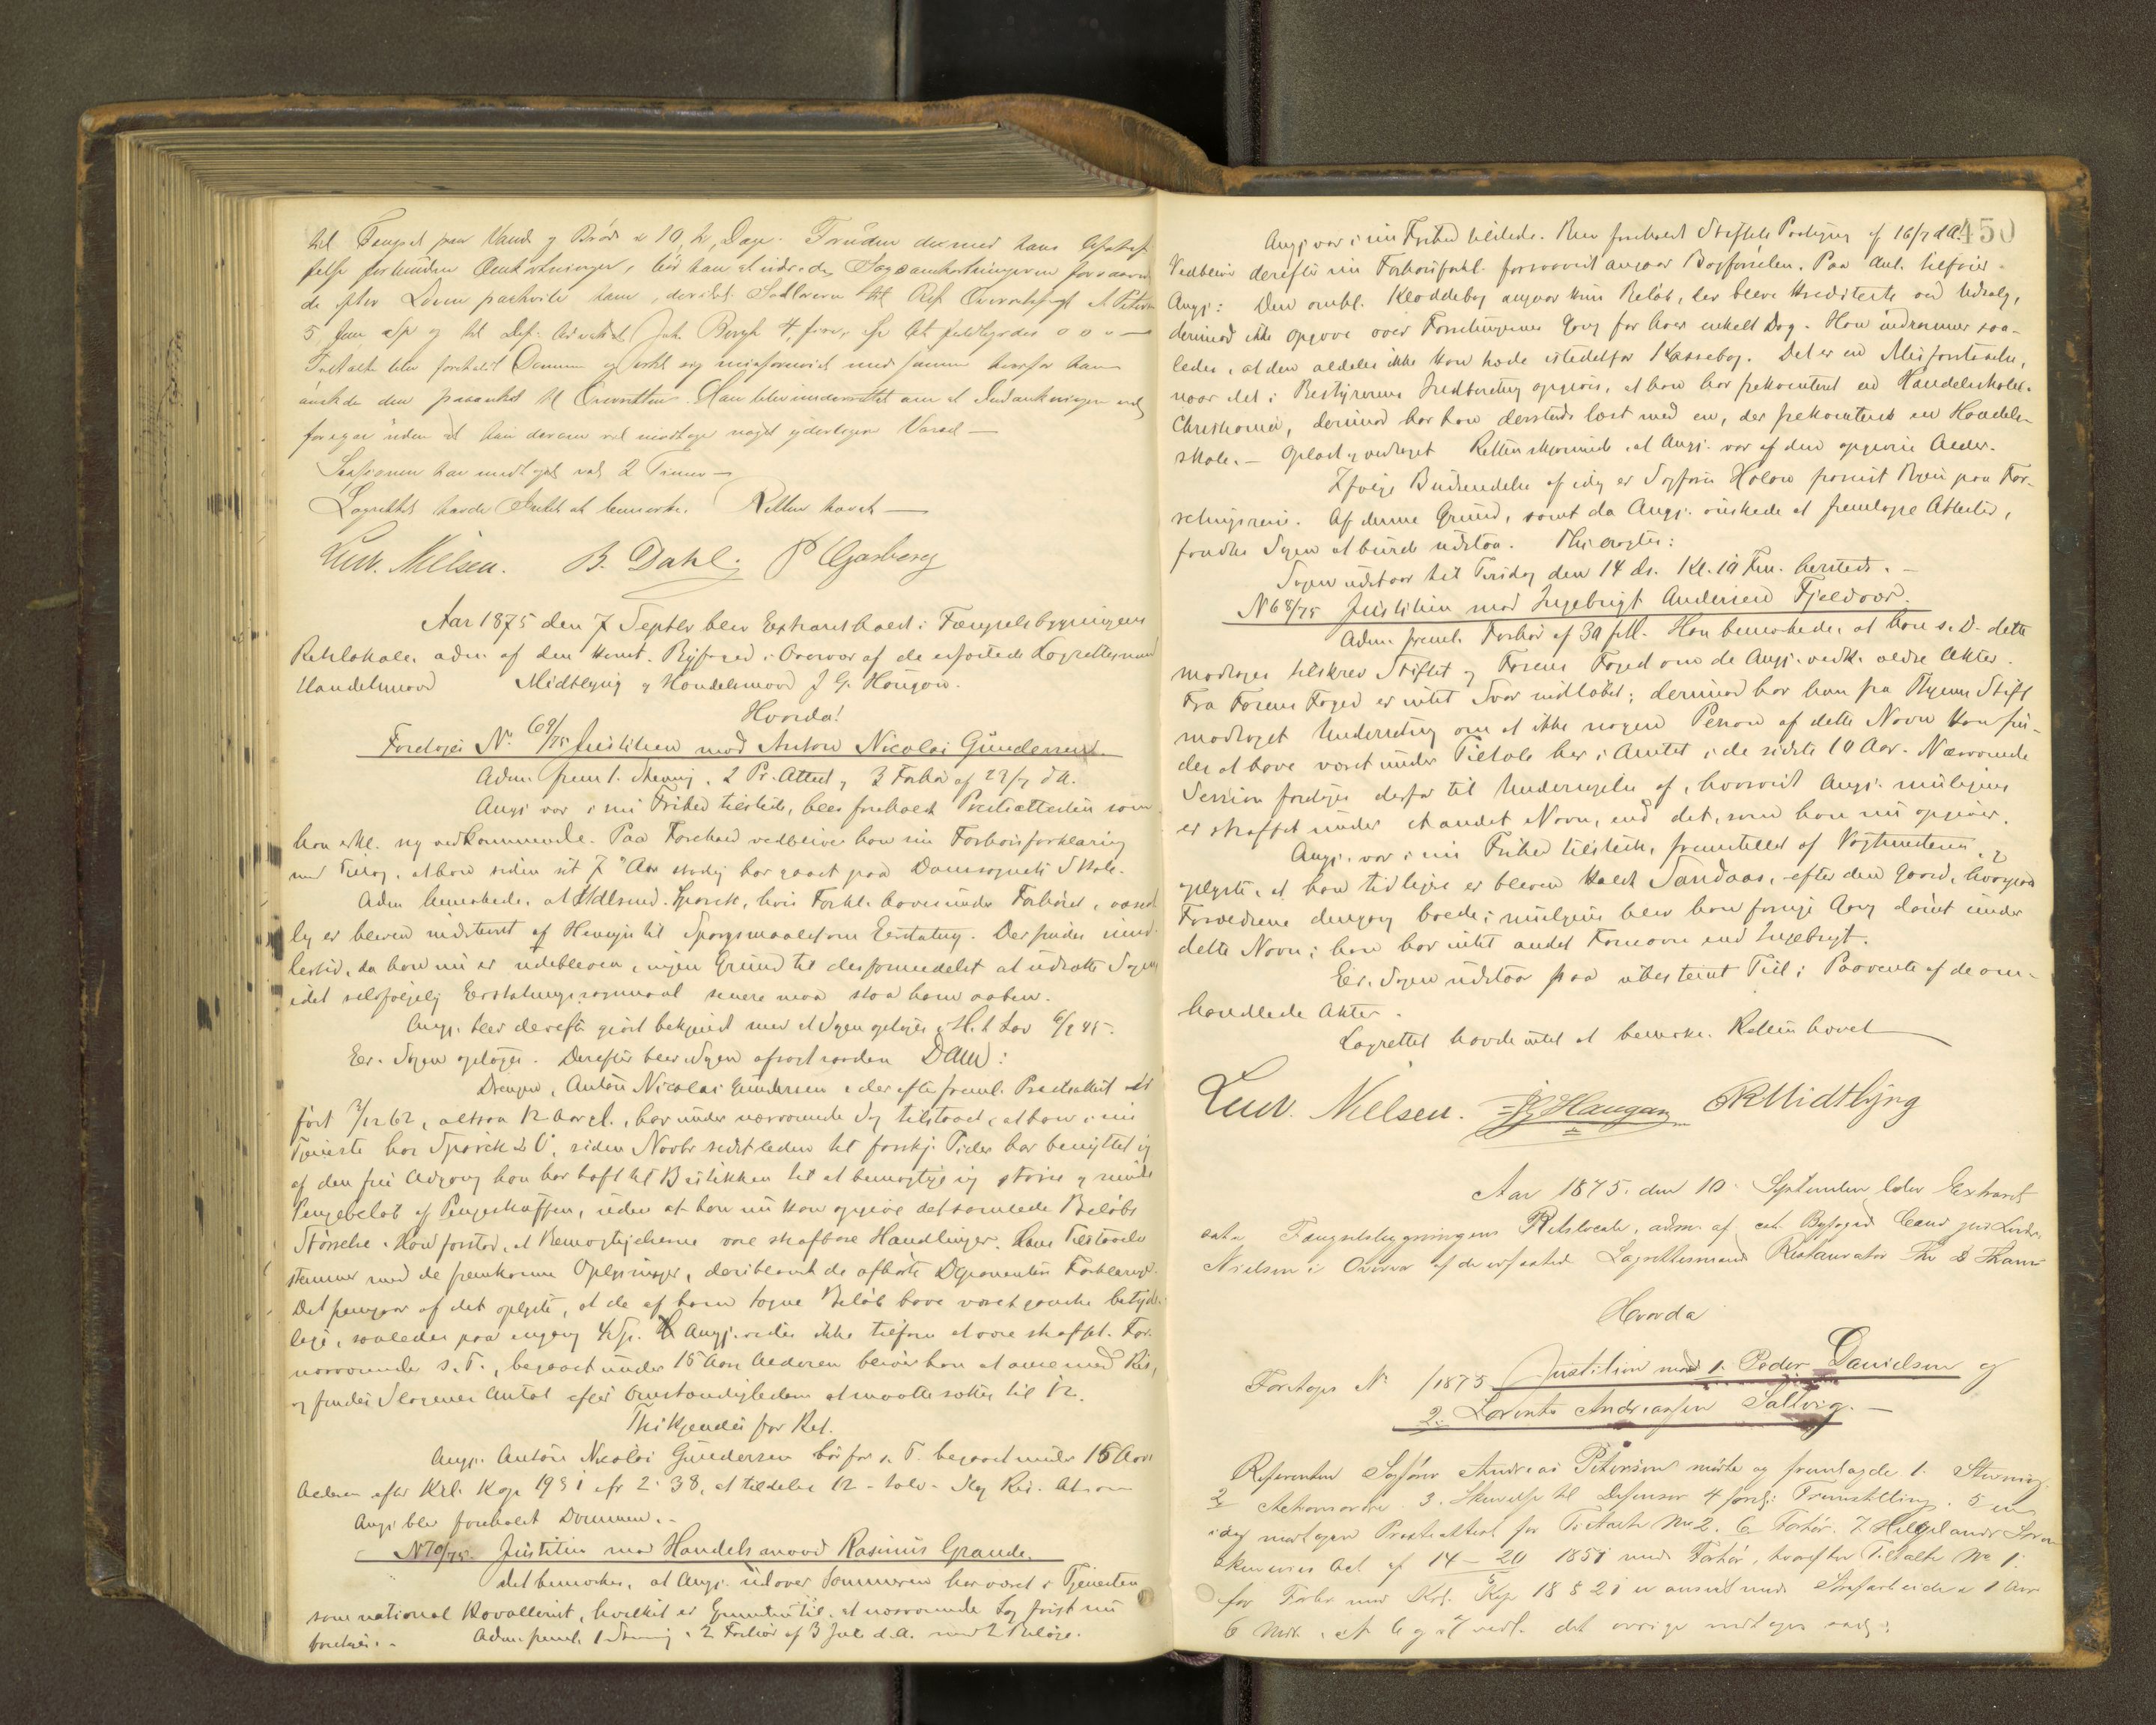 til Fængsel paa Vand og Brød i 10, ti, Dage. Foruden de med hans Arrest
følge forbundne Omkostninger, bør han at udrede Sagsomkostningerne forsaavidt
de efter Loven paahvile ham, deribl. Sallærer til Ref. Overretssagf. A. Petersen
5, fem Sp og til Def. Advokat Joh. Bergh 4, fire, Sp At efterkommes o o o —
Tiltalte blev foreholdt Dommen og erkl. sig misfornøiet med samme hvorfor han
ønskede den paaanket til Overretten. Han blev underrettet om at Indankningen vil
foregaa uden at han derom vil modtage noget yderligere Varsel —
Sessionen har medtaget vel 2 Timer —
Lagrettet havde Intet at bemærke. Retten hævet —
Ludv. Nielsen. B. Dahl. P Gjasberg
Aar 1875 den 7 Septbr blev Extraret holdt i Fængselsbygningens
Retslokale, adm. af den konst. Byfoged i Overvær af de opfattede Lagrettesmænd
Handelsmand Midtlyng og Handelsmand J G. Haugan.
Hvorda!
Foretages No. 69/75 Justitien mod Anton Nicolai Gundersen.
Adm. freml. 1. Stevning, 2 Pr. Attest og 3 Forhør af 29/7 d A.
Angj. var i sin Frihed tilstede, blev foreholdt Præsteattesten som
han erkl. sig vedkommende. Paa Forehold vedbliver han sin Forhørsforklaring
med Tillæg, at han siden sit 7de Aar stadig har gaaet paa Domsognets Skole.
Adm. bemærkede, at Udlsmd. Sparck, hvis Forkl. haves under Forhøret, væsent-
lig er bleven indstevnt af Hensyn til Spørgsmaalet om Erstatning. Der findes imid-
lertid, da han nu er udebleven, ingen Grund til desformedelst at udsætte Sagen
idet selvfølgelig Erstatningssøgsmaal senere maa staa ham aaben.
Angj. blev derefter gjort bekjendt med at Sagen optages i H. t. Lov 6/9 45.
Er. Sagen optages. Derefter blev i Sagen afsagt saadan Dom:
Drengen, Anton Nicolai Gundersen, der efter freml. Præsteattest er
født 3/12 62, altsaa 12 Aar gl., har under nærværende Sag tilstaaet, at han i sin
Tjeneste hos Sparck & C. siden Novbr sidstleden til forskj. Tider har benyttet sig
af den frie Adgang han har havt til Butikken til at bemægtige sig større og mindre
Pengebeløb af Pengeskuffen, uden at han nu kan opgive det samlede Beløbs
Størrelse. Han forstod, at Bemægtigelserne vare strafbare Handlinger. Hans Tilstaaelse
stemmer med de fremkomne Oplysninger, deriblandt de afhørte Deponenters Forklaringer.
Det fremgaar af det oplyste, at de af ham tagne Beløb have været ganske betyde-
lige, saaledes paa engang 4 Sp. Angj. vides ikke tilforn at være straffet. For
nærværende s. T., begaaet under 15 Aars Alderen bliver han at anse med Ris,
og findes Slagenes Antal efter Omstændighederne at maatte sættes til 12.
Thi kjendes for Ret.
Angj. Anton Nicolai Gundersen bør for s. T. begaaet under 15 Aars
Alderen efter Krl. Kap 19 § 1 cfr 2 § 38, at tildeles 12 - tolv - Slag Ris. At m
Angj. blev foreholdt Dommen. -
N 70/75. Justitien mod Handelsmand Rasmus Grande.
Det bemærkes, at Angj. udover Sommeren har været i Tjenesten
som national Kavallerist, hvilket er Grunden til, at nærværende Sag først nu
foretages. - Adm. freml. 1 Stevning, 2 Forhør af 3 Juli d. A. med 2 Bilage.
450
Angj. var i sin Frihed tilstede. Blev foreholdt Stiftets Paategning af 16/7 d A.
Vedbliver derefter sin Forhørsforkl. forsaavidt angaar Bogførselen. Paa Anl. tilføier
Angj: Den omhl. Kladdebog angaar kun Beløb, der bleve krediterte ved Udsalg,
derimod ikke Opgave over Forretningernes Gang for hver enkelt Dag. Han indrømmer saa-
ledes, at den aldeles ikke kan træde istedetfor Kassebog. Det er en Misforstaaelse,
naar det i Bestyrerens Indberetning opgives, at han har frekventeret en Handelsskole i
Christiania, derimod har han dersteds læst med en, der frekventerte en Handels-
skole. - Oplæst og vedtaget. Retten skjønnede, at Angj. var af den opgivne Alder.
Ifølge Budsendelse af idag er Sagfører Holow formint Byen paa For-
retningsreise. Af denne Grund, samt da Angj. ønskede at fremlægge Attester,
fandtes Sagen at burde udstaa. Thi eragtes:
Sagen udstaar til Tirsdag den 14 ds. Kl. 10 Fm. hersteds. -
N 68/75 Justitien mod Ingebrigt Andersen Fjeldvær.
Adm. freml. Forhør af 30 f. M. Han bemærkede, at han s. D. dette
modtoges tilskrev Stiftet og Fosens Foged om de Angj. vedk. ældre Akter.
Fra Fosens Foged er intet Svar indløbet; derimod har han fra Thjems Stift
modtaget Underretning om at ikke nogen Person af dette Navn kan fin-
des at have været under Tiltale her i Amtet i de sidste 10 Aar. Nærværende
Session foretages derfor til Undersøgelse af, hvorvidt Angj. muligens
er straffet under et andet Navn, end det, som han nu opgiver.
Angj. var i sin Frihed tilstede, fremstillet af Vagtmesteren, og
oplyste, at han tidligere er bleven kaldt Sandaas, efter den Gaard, hvorpaa
Forældrene dengang boede; muligens blev han forrige Gang dømt under
dette Navn; han har intet andet Fornavn end Ingebrigt.
Er. Sagen udstaar paa ubestemt Tid i Paavente af de om-
handlede Akter.
Lagrettet havde intet at bemærke. Retten hævet
Ludv. Nielsen. J G Haugan O R Midtlyng
Aar 1875. den 10. September blev Extraret
sat i Fængselsbygningens Retslocale, adm. af cst. Byfoged Cand jur Ludv.
Nielsen i Overvær af de opfattede Lagrettesmænd Restauratør
Hvorda
Foretages No /1875 Justitien mod 1. Peder Danielsen og
2. Lorents Andreassen Saltvig. -
Referenten Sagfører Andreas Petersen mødte og fremlagde 1. Stevning
2 Actionsordre 3. Skrivelse til Defensor 4 Fremstilling. 5 en
idag modtagen Præsteattest for Tiltalte No 2. 6 Forhør. 7 Helgelands
Act af 14 - 20 1851 med Forhør, hvorefter Tiltalte No 1.
for Forbr. mod Krl. Kap 18 § 21 er anseet med Strafarbeide i 1 Aar
6 Mdr. det øvrige